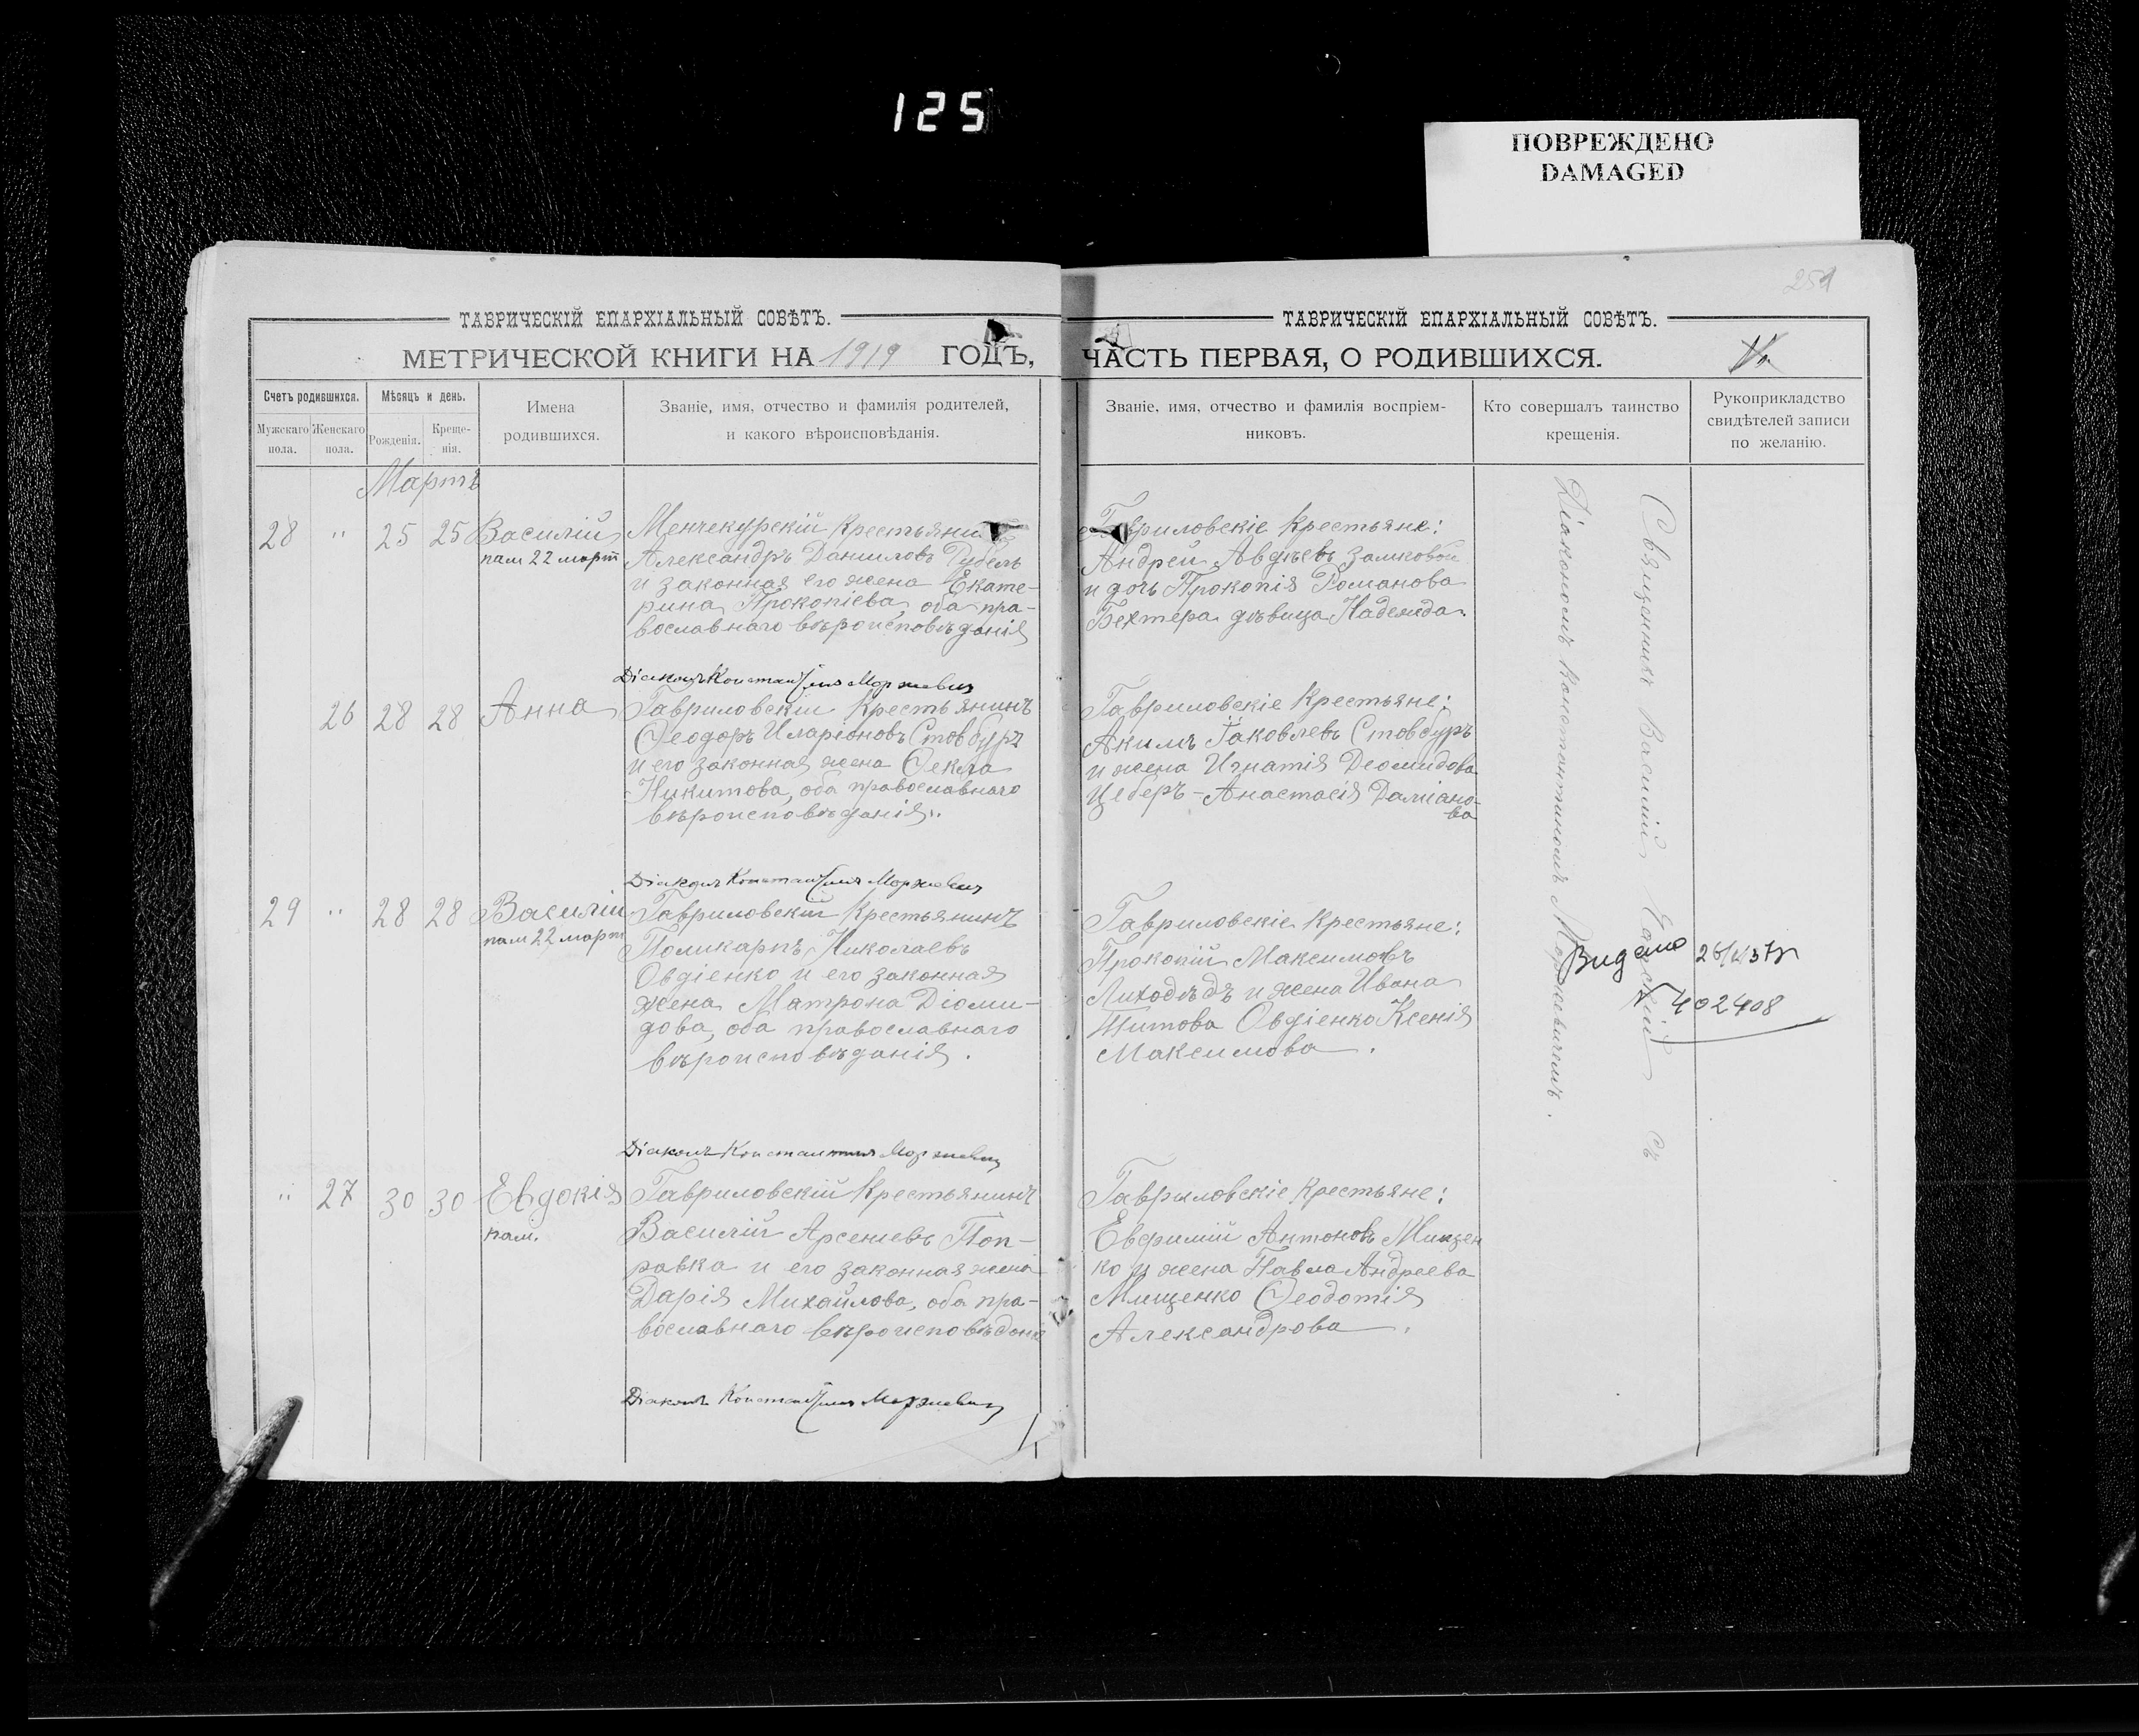 125
ПОВРЕЖДЕНО
DAMAGED
251
ТАВРИЧЕСКІЙ ЕПАРХІАЛЬНЫЙ СОВѢТЪ.
МЕТРИЧЕСКОЙ КНИГИ НА 1919 ГОДЪ,
Счетъ родившихся.
Мужскаго пола.
Женскаго пола.
Мѣсяцъ и день.
Рожденія.
Креще-
нія.
Имена
родившихся.
Званіе, имя, отчество и фамилія родителей,
и какого вѣроисповѣданія.
Мартъ
28 " 25 25 Василій
пам 22 март
Менчекурскій Крестьянин
Александръ Даниловъ Рубель
и законная его жена Екате-
рина Прокопіева, оба пра-
вославнаго вѣроисповѣданія
Діаконъ Константинъ Моржевичъ
26 28 28 Анна
Гавриловскій Крестьянинъ
Ѳеодоръ Иларіоновъ Стовбуръ
и его законная жена Ѳекла
Никитова, оба православнаго
вѣроисповѣданія.
Діаконъ Константинъ Моржевичъ
29 " 28 28 Василій
пам 22 март
Гавриловскій Крестьянинъ
Поликарпъ Николаевъ
Овдіенко и его законная
жена Матрона Діоми-
дова, оба православнаго
вѣроисповѣданія.
Діаконъ Константинъ Моржевичъ
" 27 30 30 Евдокія
пам.
Гавриловскій Крестьянинъ
Василій Арсеніевъ Поп-
равка и его законная жена
Дарія Михайлова, оба пра-
вославнаго вѣроисповѣданія
Діаконъ Константинъ Моржевичъ
ТАВРИЧЕСКІЙ ЕПАРХІАЛЬНЫЙ СОВѢТЪ.
ЧАСТЬ ПЕРВАЯ, О РОДИВШИХСЯ.
Званіе, имя, отчество и фамилія воспріем-
никовъ.
Кто совершалъ таинство
крещенія.
Рукоприкладство
свидѣтелей записи
по желанію.
Гавриловскіе Крестьяне:
Андрей Авдѣевъ Замковой
и дочь Прокопія Романова
Бехтера дѣвица Надежда.
Гавриловскіе Крестьяне:
Акимъ Іаковлевъ Стовбуръ
и жена Игнатія Деомидова
Цеберъ - Анастасія Даміано-
ва
Гавриловскіе Крестьяне:
Прокопій Максимовъ
Лиходѣдъ и жена Ивана
Титова Овдіенко Ксенія
Максимова.
Гавриловскіе Крестьяне:
Евфимій Антоновъ Мищен
ко и жена Павла Андреева
Мищенко Ѳеодотія
Александрова.
Священникъ Василій съ
Діакономъ Константиномъ Моржевичемъ.
Видано
402408